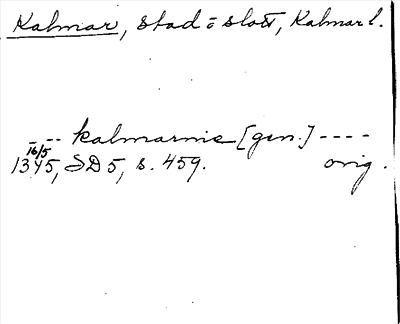 Kalmar, stad o slott, Kalmar l.
- -- kalmarnie [gen.] ----
16/5
1345, SD 5, s. 459. orig.